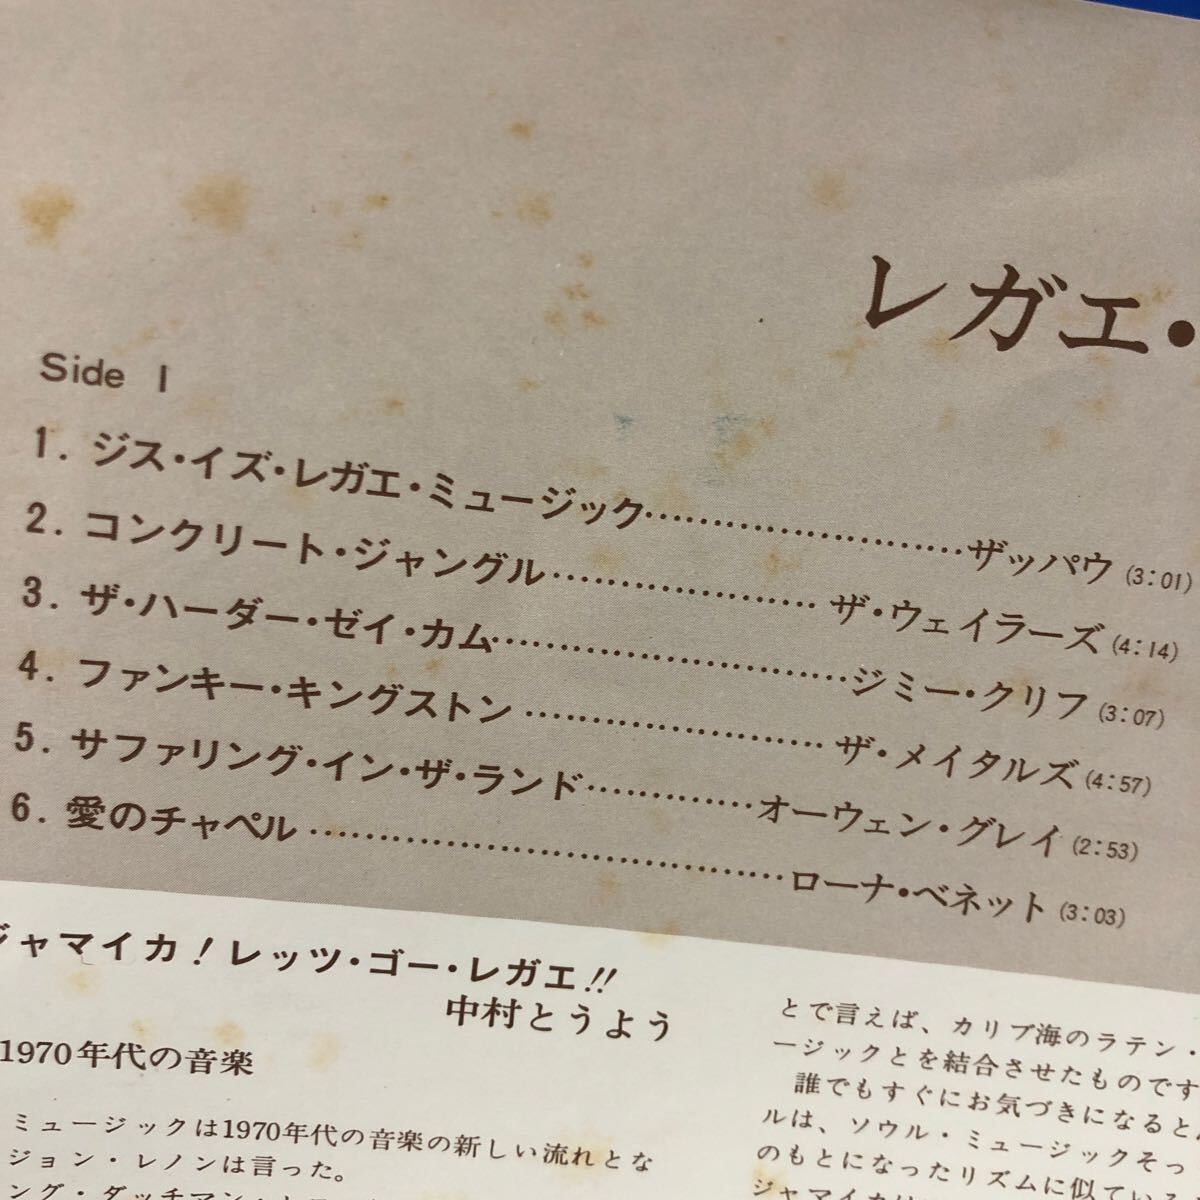 レガエ・
Side 1
1. ジス・イズ・レガエ・ミュージック……………………ザッパウ (3:01)
2. コンクリート・ジャングル……………………ザ・ウェイラーズ (4:14)
3. ザ・ハーダー・ゼイ・カム……………………ジミー・クリフ (3:07)
4. ファンキー・キングストン……………………ザ・メイタルズ (4:57)
5. サファリング・イン・ザ・ランド……………オーウェン・グレイ (2:53)
6. 愛のチャペル……………………………ローナ・ベネット (3:03)
ジャマイカ！レッツ・ゴー・レガエ!!
中村とうよう
1970年代の音楽
ミュージックは1970年代の音楽の新しい流れとな
ジョン・レノンは言った。
ング・ダッチマン・
とで言えば、カリブ海のラテン・
ージックとを結合させたものです
誰でもすぐにお気づきになると
ルは、ソウル・ミュージックそっ
のもとになったリズムに似ている
ジャマイカ